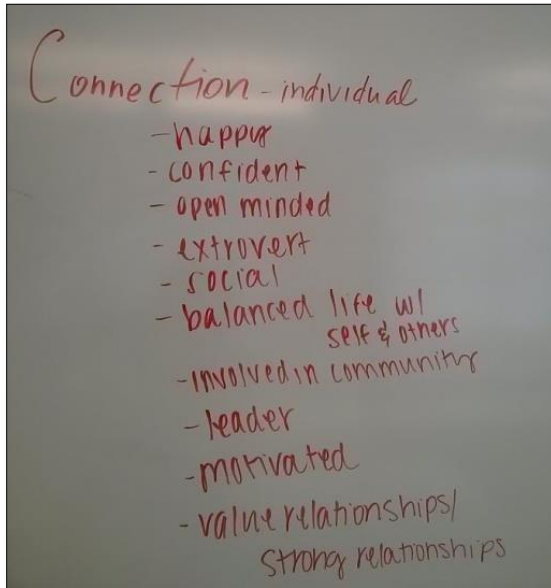 Connection - individual
- happy
- confident
- open minded
- extrovert
- social
- balanced life w/
self & others
- involved in community
- leader
- motivated
- value relationships/
strong relationships